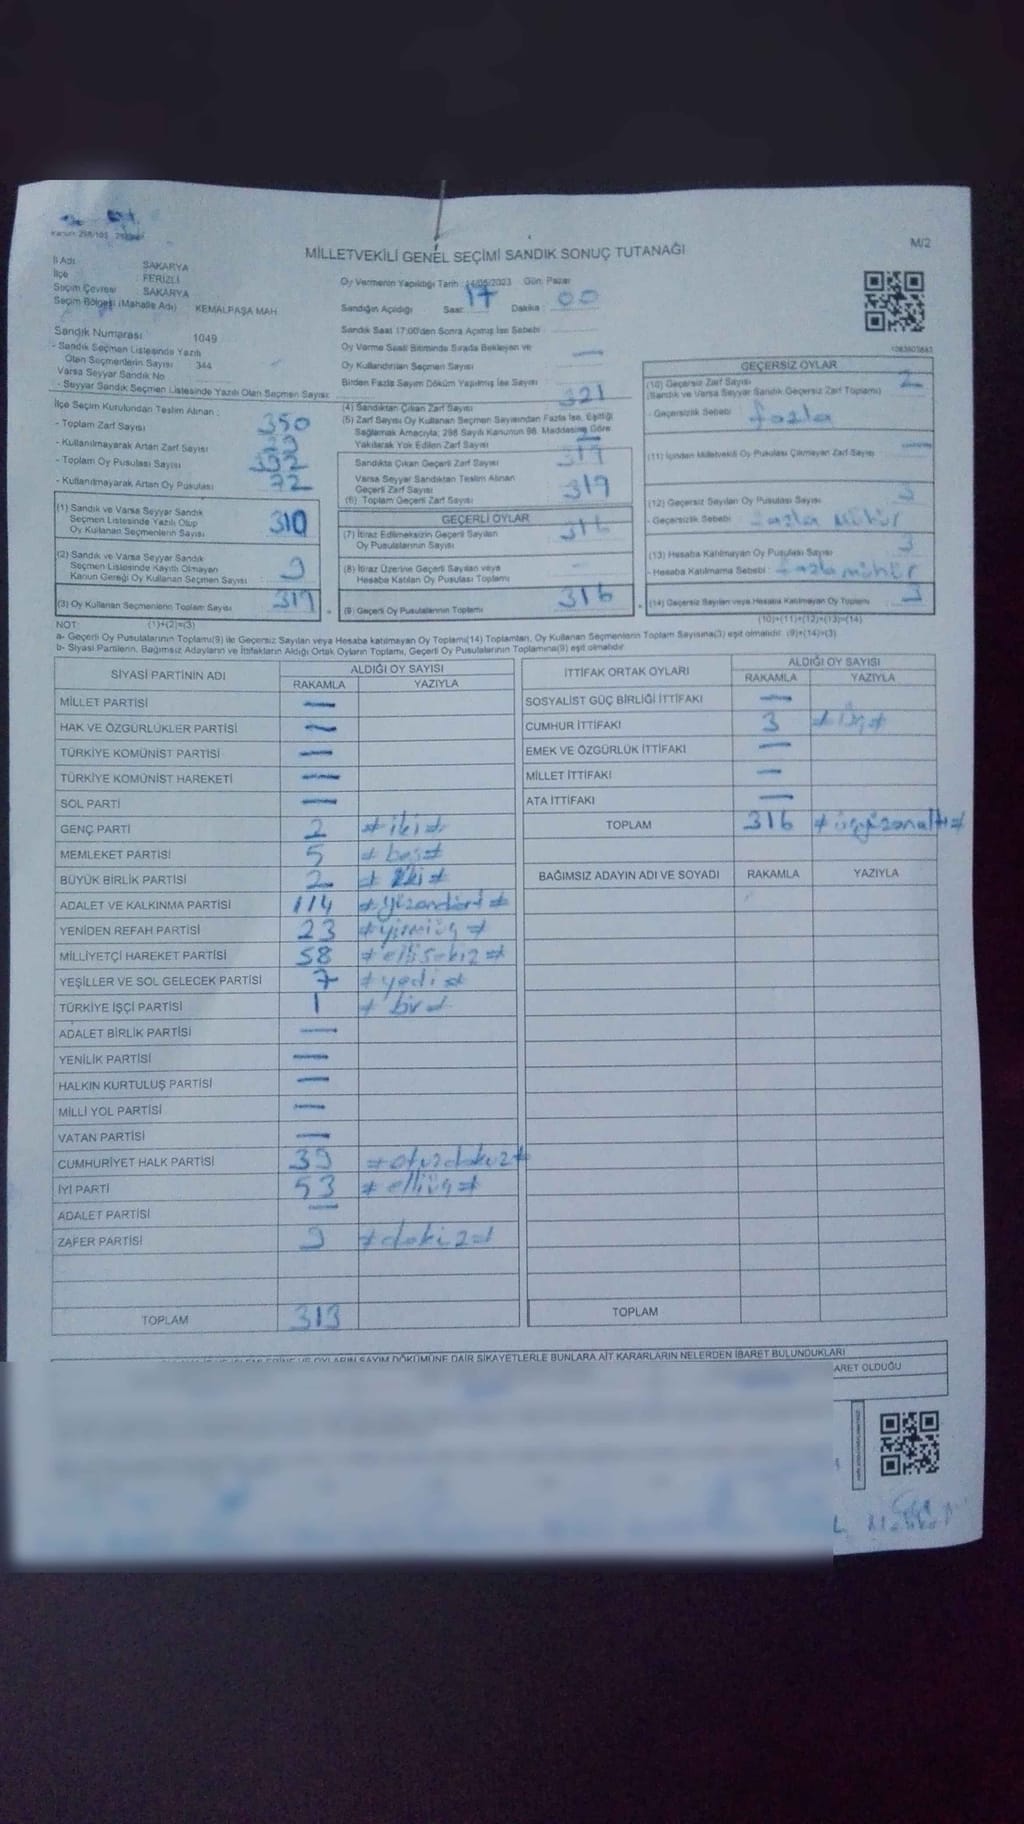 MİLLETVEKİLİ GENEL SEÇİMİ SANDIK SONUÇ TUTANAĞI
M/2
İl Adı SAKARYA
İlçe FERİZLİ
Seçim Çevresi SAKARYA
Seçim Bölgesi (Mahalle Adı) KEMALPAŞA MAH.
Oy Vermenin Yapıldığı Tarih : 14/05/2023 Gün: Pazar
Sandığın Açıldığı Saat: 17 Dakika : 00
Sandık Saat 17:00'den Sonra Açımış İse Sebebi
Oy Verme Saati Bitiminde Sırada Bekleyen ve
Oy Kullandırılan Seçmen Sayısı
Birden Fazla Sayım Döküm Yapılmış İse Sayısı
Sandık Numarası 1049
- Sandık Seçmen Listesinde Yazılı
Olan Seçmenlerin Sayısı 344
Varsa Seyyar Sandık No
- Seyyar Sandık Seçmen Listesinde Yazılı Olan Seçmen Sayısı:
İlçe Seçim Kurulundan Teslim Alınan :
- Toplam Zarf Sayısı 350
- Kullanılmayarak Artan Zarf Sayısı
- Toplam Oy Pusulası Sayısı
- Kullanılmayarak Artan Oy Pusulası 72
(1) Sandık ve Varsa Seyyar Sandık
Seçmen Listesinde Yazılı Olup
Oy Kullanan Seçmenlerin Sayısı 310
(2) Sandık ve Varsa Seyyar Sandık
Seçmen Listesinde Kayıtlı Olmayan
Kanun Gereği Oy Kullanan Seçmen Sayısı 9
(3) Oy Kullanan Seçmenlerin Toplam Sayısı 319
(4) Sandıktan Çıkan Zarf Sayısı 321
(5) Zarf Sayısı Oy Kullanan Seçmen Sayısından Fazla İse, Eşitliği
Sağlamak Amacıyla; 298 Sayılı Kanunun 98. Maddesine Göre
Yakılarak Yok Edilen Zarf Sayısı 2
Sandıkta Çıkan Geçerli Zarf Sayısı 319
Varsa Seyyar Sandıktan Teslim Alınan
Geçerli Zarf Sayısı
(6) Toplam Geçerli Zarf Sayısı 319
GEÇERLİ OYLAR
(7) İtiraz Edilmeksizin Geçerli Sayılan
Oy Pusulalarının Sayısı 316
(8) İtiraz Üzerine Geçerli Sayılan veya
Hesaba Katılan Oy Pusulası Toplamı -
(9) Geçerli Oy Pusulalarının Toplamı 316
GEÇERSİZ OYLAR
(10) Geçersiz Zarf Sayısı 2
(Sandık ve Varsa Seyyar Sandık Geçersiz Zarf Toplamı)
- Geçersizlik Sebebi : fazla
(11) İçinden Milletvekili Oy Pusulası Çıkmayan Zarf Sayısı
(12) Geçersiz Sayılan Oy Pusulası Sayısı 3
- Geçersizlik Sebebi : fazla mühür
(13) Hesaba Katılmayan Oy Pusulası Sayısı 3
- Hesaba Katılmama Sebebi : fazla mühür
(14) Geçersiz Sayılan veya Hesaba Katılmayan Oy Toplamı 3
NOT : (1)+(2)=(3)
(10)+(11)+(12)+(13)=(14)
a- Geçerli Oy Pusulalarının Toplamı(9) ile Geçersiz Sayılan veya Hesaba katılmayan Oy Toplamı(14) Toplamları, Oy Kullanan Seçmenlerin Toplam Sayısına(3) eşit olmalıdır. (9)+(14)=(3)
b- Siyasi Partilerin, Bağımsız Adayların ve İttifakların Aldığı Ortak Oyların Toplamı, Geçerli Oy Pusulalarının Toplamına(9) eşit olmalıdır.
SİYASİ PARTİNİN ADI ALDIĞI OY SAYISI
RAKAMLA YAZIYLA
MİLLET PARTİSİ —
HAK VE ÖZGÜRLÜKLER PARTİSİ —
TÜRKİYE KOMÜNİST PARTİSİ —
TÜRKİYE KOMÜNİST HAREKETİ —
SOL PARTİ —
GENÇ PARTİ 2 ≠ iki ≠
MEMLEKET PARTİSİ 5 ≠ beş ≠
BÜYÜK BİRLİK PARTİSİ 2 ≠ iki ≠
ADALET VE KALKINMA PARTİSİ 114 ≠ yüzondört ≠
YENİDEN REFAH PARTİSİ 23 ≠ yirmiüç ≠
MİLLİYETÇİ HAREKET PARTİSİ 58 ≠ ellisekiz ≠
YEŞİLLER VE SOL GELECEK PARTİSİ 7 ≠ yedi ≠
TÜRKİYE İŞÇİ PARTİSİ 1 ≠ bir ≠
ADALET BİRLİK PARTİSİ —
YENİLİK PARTİSİ —
HALKIN KURTULUŞ PARTİSİ —
MİLLİ YOL PARTİSİ —
VATAN PARTİSİ —
CUMHURİYET HALK PARTİSİ 39 ≠ otuzdokuz ≠
İYİ PARTİ 53 ≠ elliüç ≠
ADALET PARTİSİ —
ZAFER PARTİSİ 9 ≠ dokuz ≠
TOPLAM 313
İTTİFAK ORTAK OYLARI ALDIĞI OY SAYISI
RAKAMLA YAZIYLA
SOSYALİST GÜÇ BİRLİĞİ İTTİFAKI —
CUMHUR İTTİFAKI 3 ≠ üç ≠
EMEK VE ÖZGÜRLÜK İTTİFAKI —
MİLLET İTTİFAKI —
ATA İTTİFAKI —
TOPLAM 316 ≠ üçyüzonaltı ≠
BAĞIMSIZ ADAYIN ADI VE SOYADI RAKAMLA YAZIYLA
TOPLAM
OYLARIN SAYIM DÖKÜMÜNE DAİR ŞİKAYETLERLE BUNLARA AİT KARARLARIN NELERDEN İBARET BULUNDUKLARI
ARET OLDUĞU